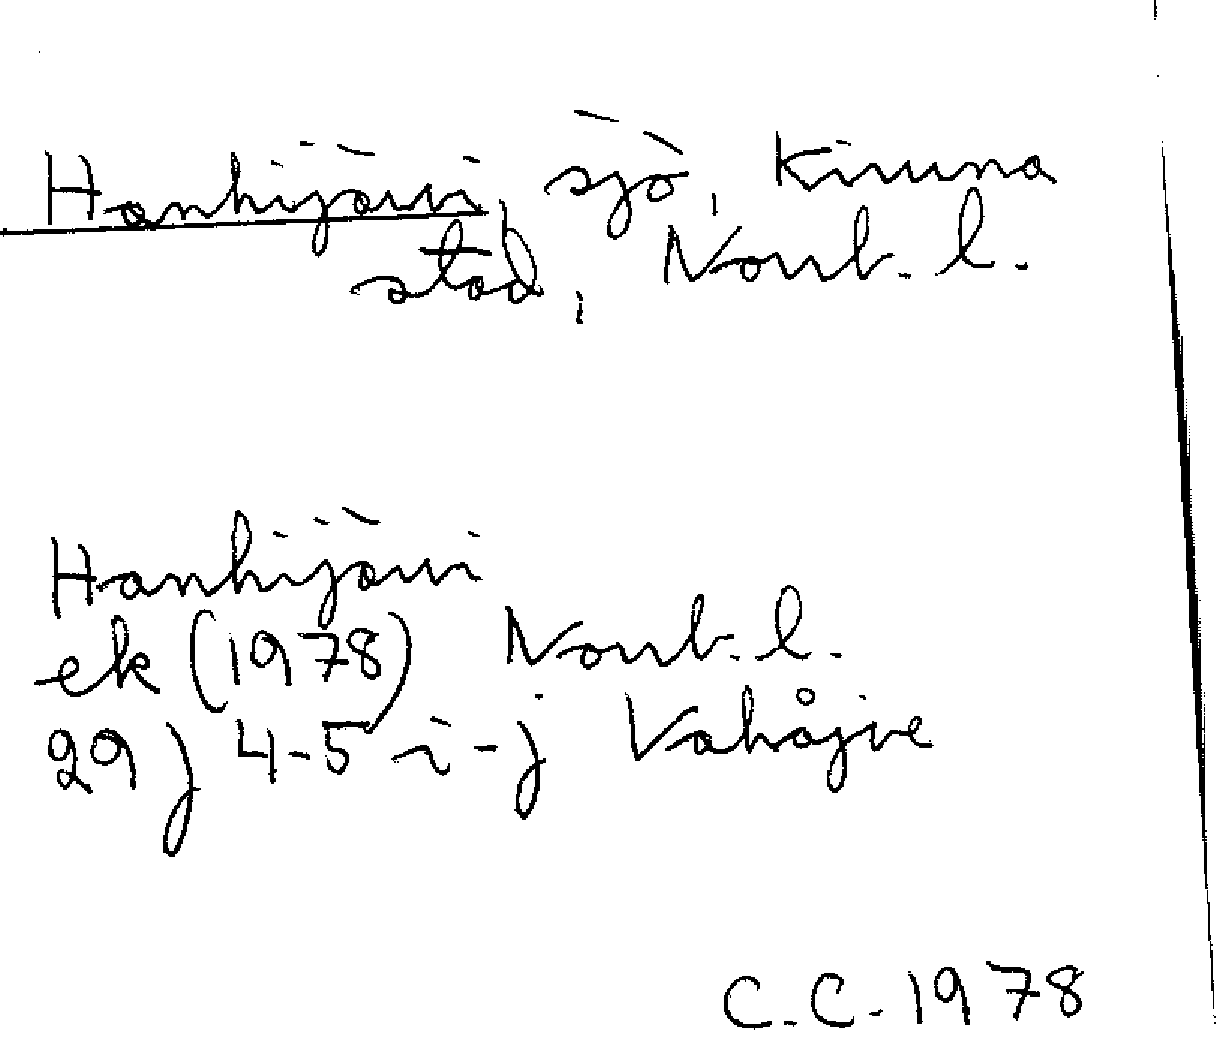 Hanhijärvi, sjö, Kiruna
stad, Norrb. l.
Hanhijärvi
ek (1978) Norrb. l.
29 J 4-5 i-j Vahåjve
C.C. 1978